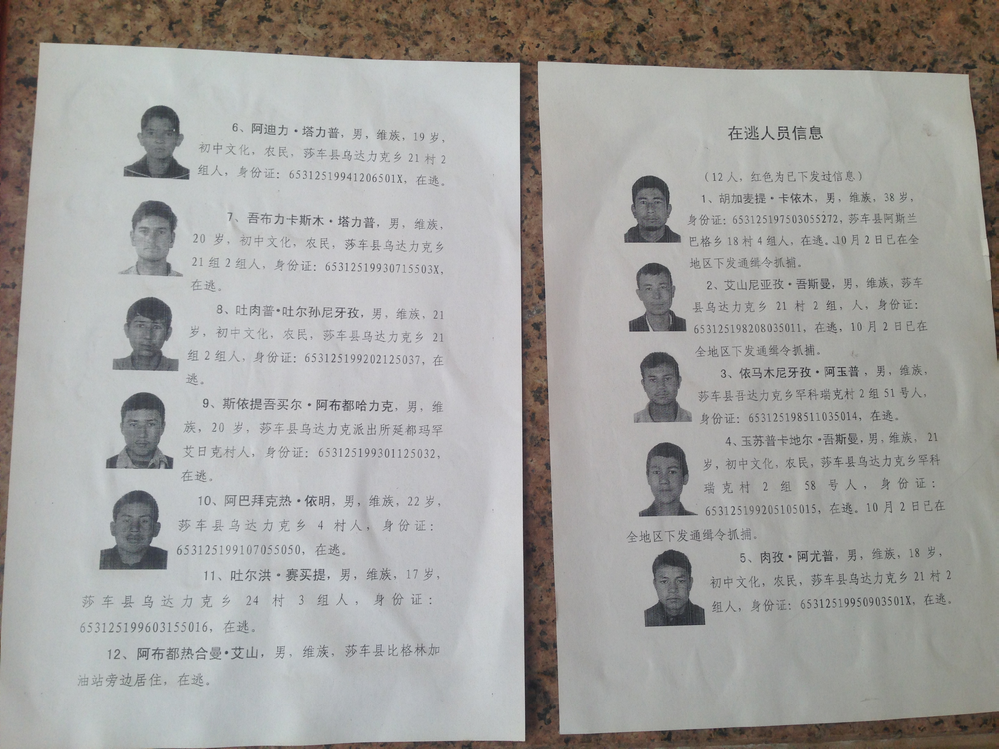 在逃人员信息
（12人，红色为已下发过信息）
1、胡加麦提·卡依木，男，维族，38岁，
身份证：653125197503055272，莎车县阿斯兰
巴格乡18村4组人，在逃。10月2日已在全
地区下发通缉令抓捕。
2、艾山尼亚孜·吾斯曼，男，维族，莎车
县乌达力克乡 21 村 2 组，人，身份证：
653125198208035011，在逃，10月2日已在
全地区下发通缉令抓捕。
3、依马木尼牙孜·阿玉普，男，维族，
莎车县吾达克乡罕科瑞克村2组51号人，
身份证：653125198511035014，在逃。
4、玉苏普卡地尔·吾斯曼，男，维族，21
岁，初中文化，农民，莎车县乌达力克乡罕科
瑞克村 2 组 58 号人，身份证：
653125199205105015，在逃。10月2日已在
全地区下发通缉令抓捕。
5、肉孜·阿尤普，男，维族，18岁，
初中文化，农民，莎车县乌达力克乡21村2
组人，身份证：65312519950903501X，在逃。
6、阿迪力·塔力普，男，维族，19岁，
初中文化，农民，莎车县乌达力克乡21村2
组人，身份证：65312519941206501X，在逃。
7、吾布力卡斯木·塔力普，男，维族，
20岁，初中文化，农民，莎车县乌达力克乡
21组2组人，身份证：65312519930715503X，
在逃。
8、吐肉普·吐尔孙尼牙孜，男，维族，21
岁，初中文化，农民，莎车县乌达力克乡 21
组2组人，身份证：653125199202125037，在
逃。
9、斯依提吾买尔·阿布都哈力克，男，维
族，20岁，莎车县乌达力克派出所延都玛罕
艾日克村人，身份证：653125199301125032，
在逃。
10、阿巴拜克热·依明，男，维族，22岁，
莎车县乌达力克乡 4 村人，身份证：
653125199107055050，在逃。
11、吐尔洪·赛买提，男，维族，17岁，
莎车县乌达力克乡 24 村 3 组人，身份证：
653125199603155016，在逃。
12、阿布都热合曼·艾山，男，维族，莎车县比格林加
油站旁边居住，在逃。